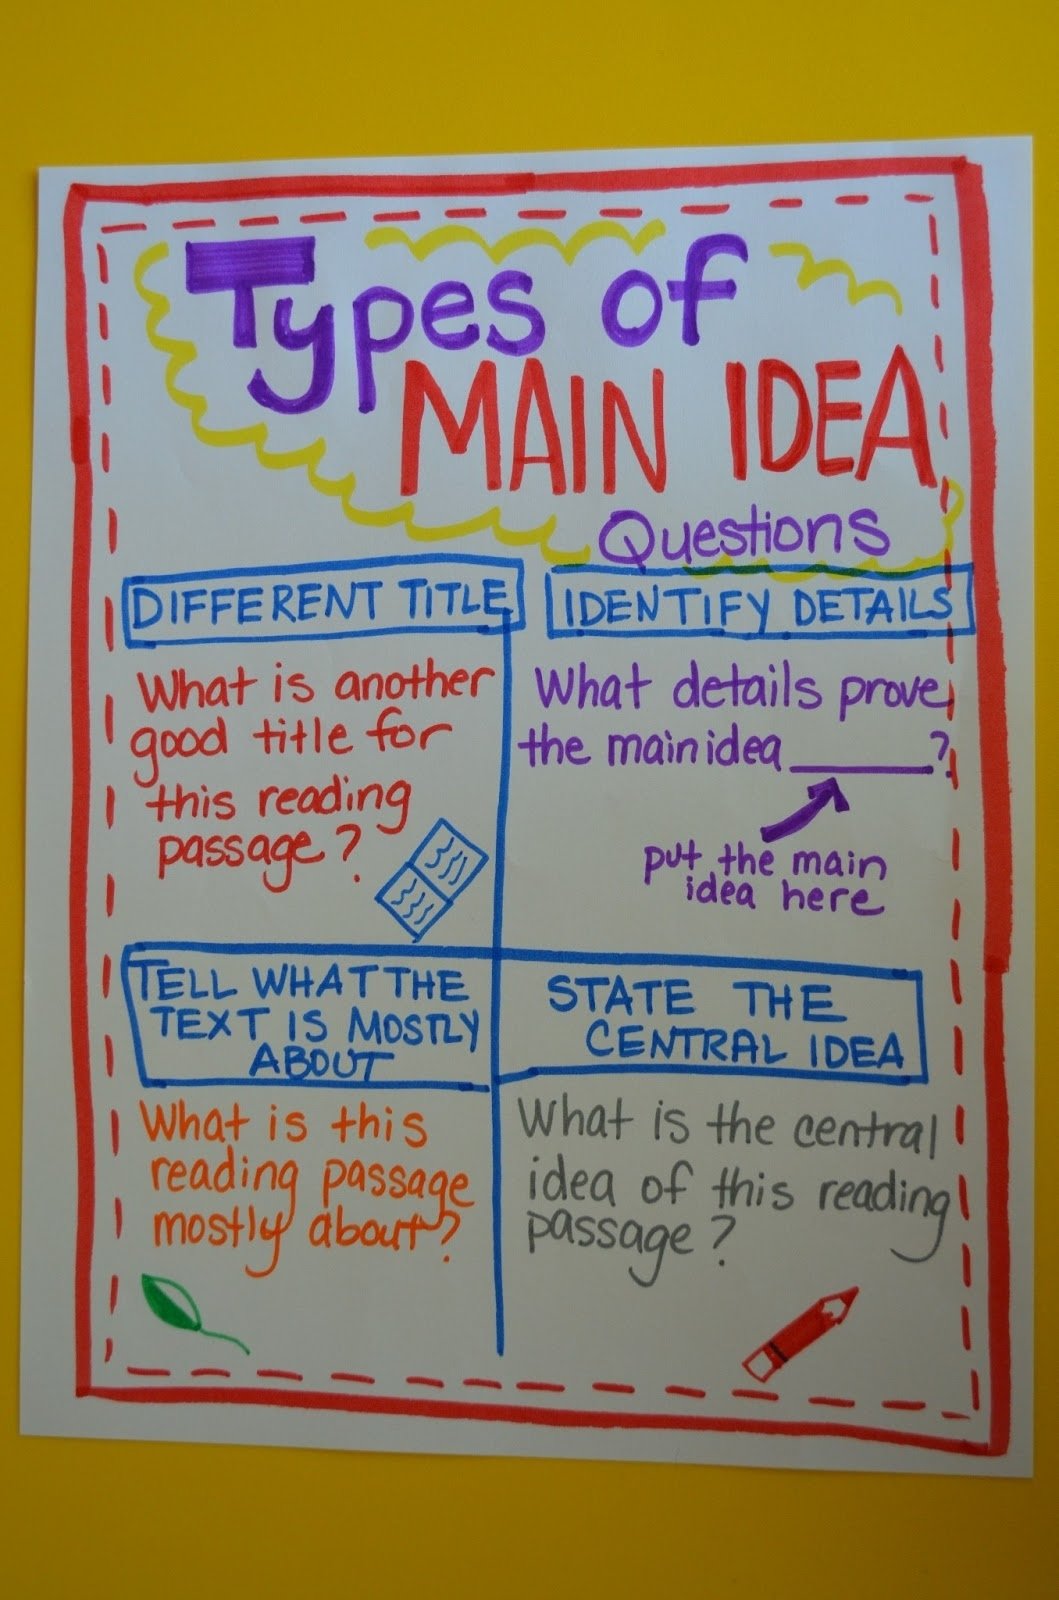 Types of
MAIN IDEA
Questions
DIFFERENT TITLE
What is another
good title for
this reading
passage?
IDENTIFY DETAILS
What details prove
the main idea ______?
put the main
idea here
TELL WHAT THE
TEXT IS MOSTLY
ABOUT
What is this
reading passage
mostly about?
STATE THE
CENTRAL IDEA
What is the central
idea of this reading
passage?